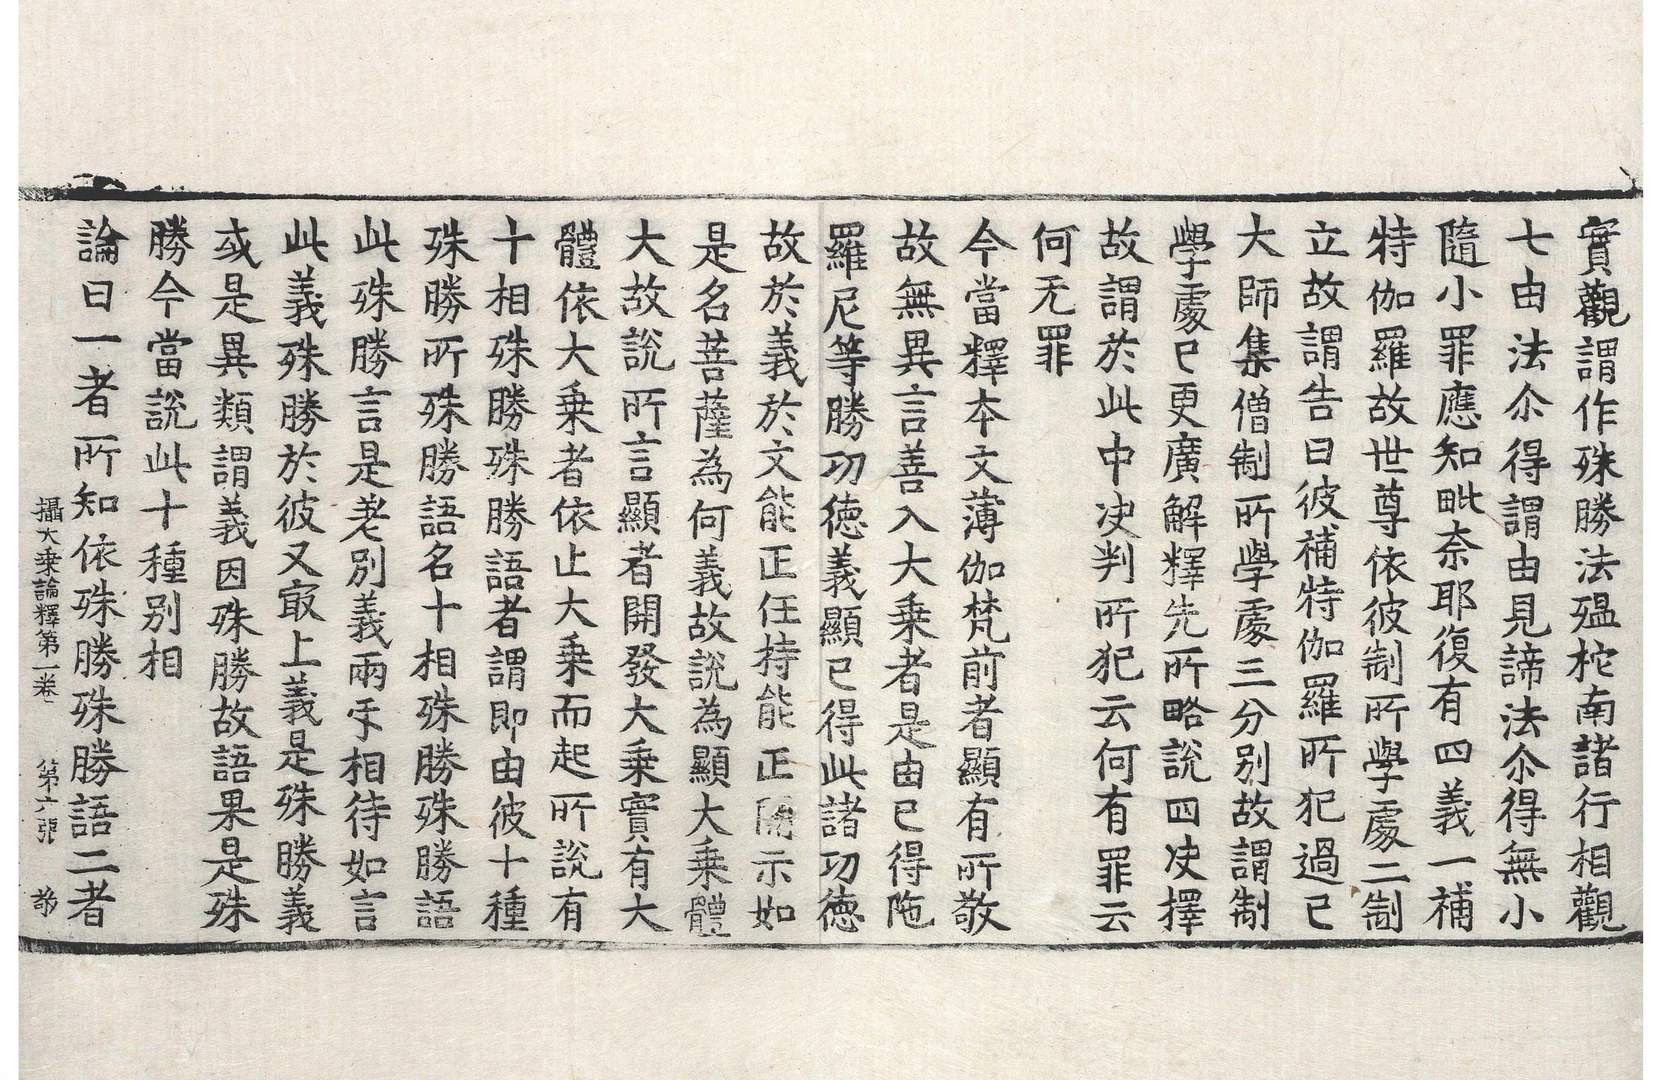 實觀謂作殊勝法殟柁南諸行相觀
七由法尒得謂由見諦法尒得無小
隨小罪應知毗奈耶復有四義一補
特伽羅故世尊依彼制所學處二制
立故謂告曰彼補特伽羅所犯過已
大師集僧制所學處三分別故謂制
學處已更廣解釋先所略說四決擇
故謂於此中決判所犯云何有罪云
何无罪
今當釋本文薄伽梵前者顯有所敬
故無異言善入大乗者是由已得陁
羅尼等勝功徳義顯已得此諸功徳
故於義於文能正任持能正開示如
是名菩薩為何義故說為顯大乗體
大故說所言顯者開發大乗實有大
體依大乗者依止大乗而起所說有
十相殊勝殊勝語者謂即由彼十種
殊勝所殊勝語名十相殊勝殊勝語
此殊勝言是差別義兩互相待如言
此義殊勝於彼又㝡上義是殊勝義
或是異類謂義因殊勝故語果是殊
勝今當說此十種別相
論曰一者所知依殊勝殊勝語二者
攝大乗論釋第一卷 第六張